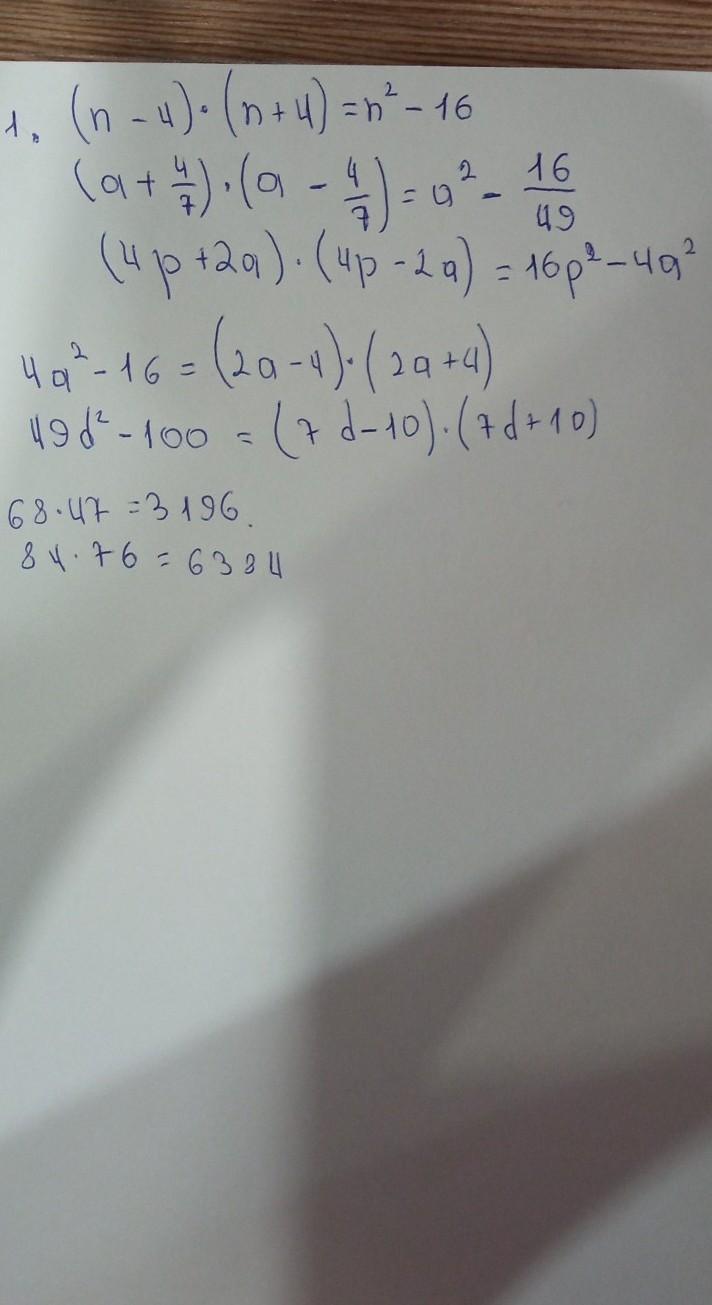 1. (n - 4)·(n + 4) = n² - 16
(a + 4/7)·(a - 4/7) = a² - 16/49
(4p + 2a)·(4p - 2a) = 16p² - 4a²
4a² - 16 = (2a - 4)·(2a + 4)
49d² - 100 = (7d - 10)·(7d + 10)
68·47 = 3196.
84·76 = 6384